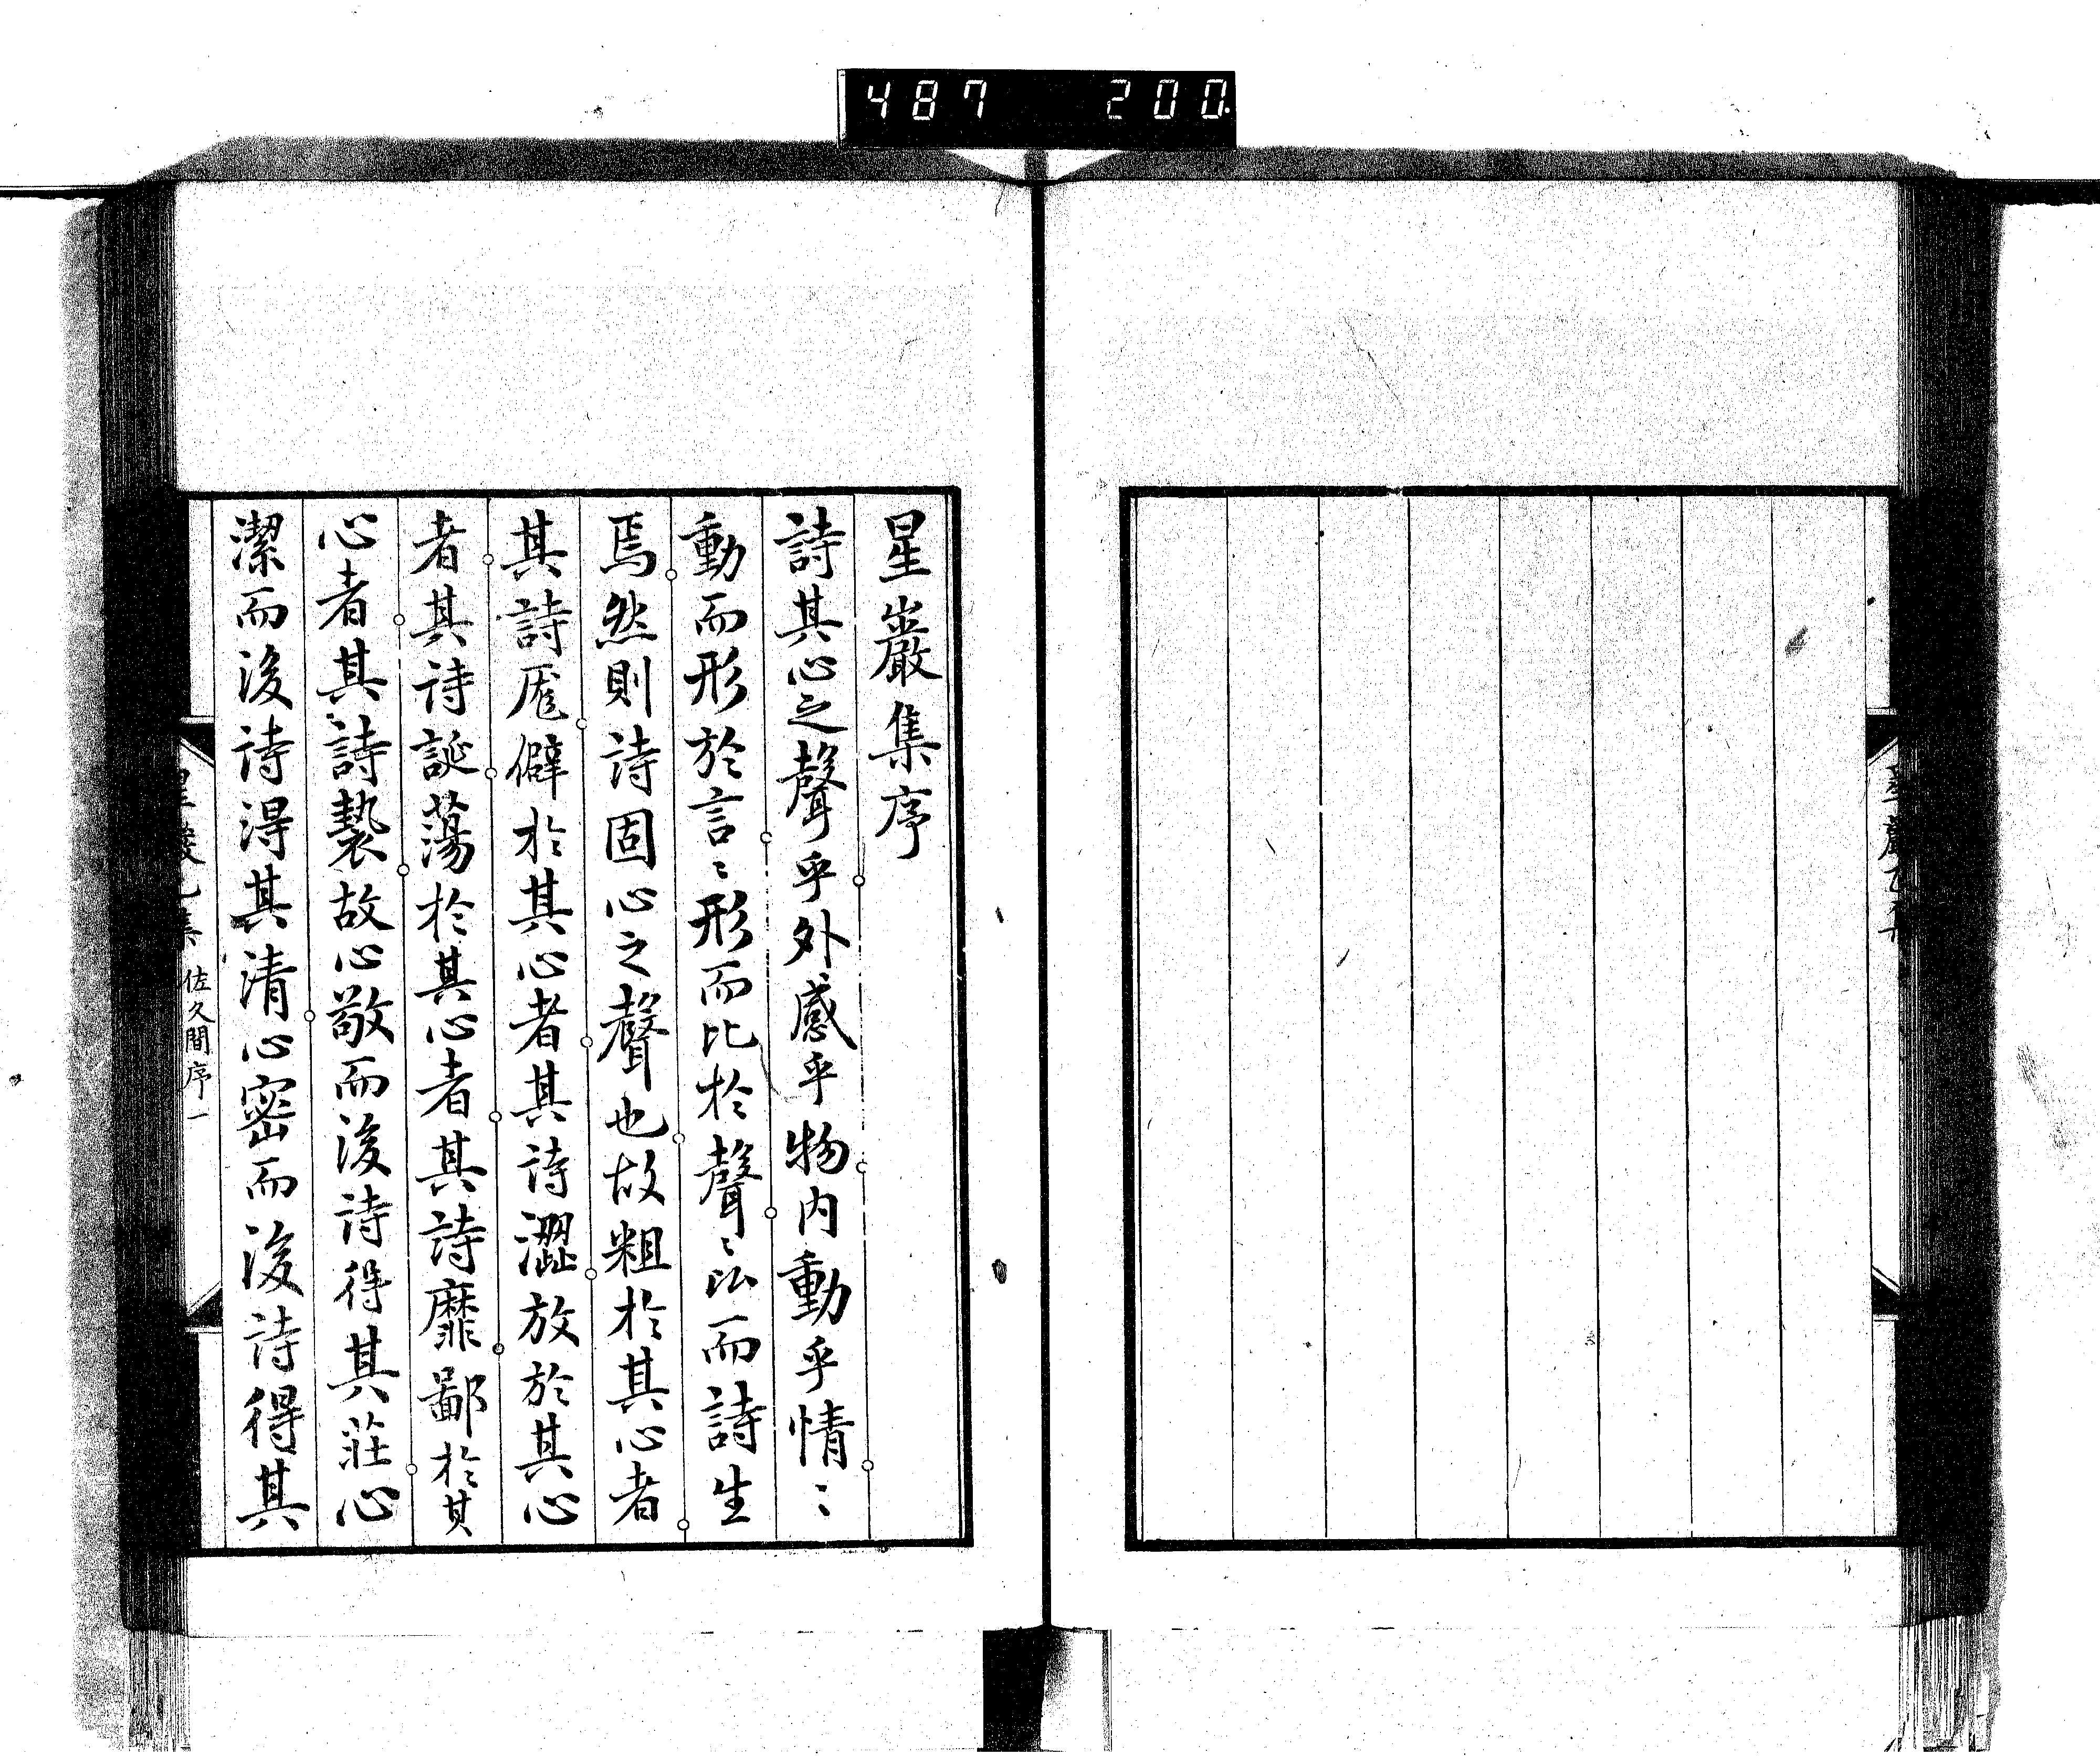 487 200
星巖集序
詩其心之聲乎外感乎物内動乎情〻
動而形於言〻形而比於聲〻比而詩生
焉然則詩固心之聲也故粗於其心者
其詩尨僻於其心者其詩澀放於其心
者其詩誕蕩於其心者其詩靡鄙於其
心者其詩褻故心敬而後詩得其莊心
潔而後詩得其清心密而後詩得其
佐久間序一